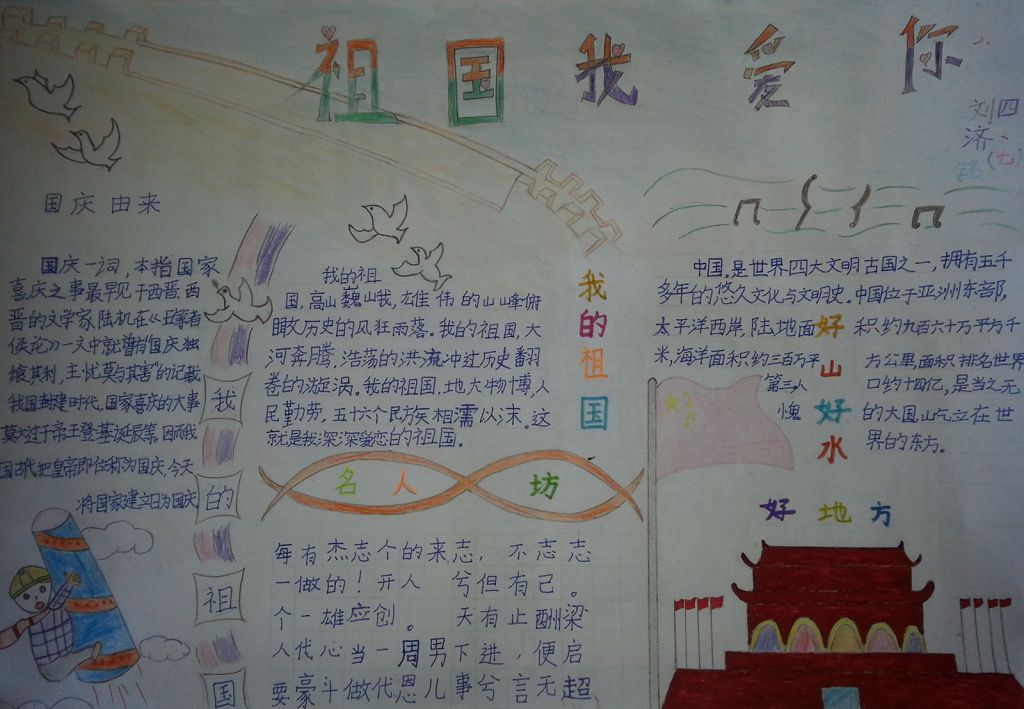 祖国我爱你
四、(七)
刘济铭
国庆由来
国庆一词,本指国家
喜庆之事最早见于西晋.西
晋的文学家陆机在《五等者
侯论》一文中就曾有国庆独
飨其利,主忧莫与其害"的记载
我国封建时代,国家喜庆的大事
莫大过于帝王登基诞辰等.因而我
国古代把皇帝即位称为国庆,今天
将国家建立日为国庆
我的祖国
我的祖
国,高山巍山我,雄伟的山山峰俯
瞰历史的风狂雨落。我的祖国,大
河奔腾,浩荡的洪流冲过历史翻
卷的旋涡。我的祖国,地大物博,人
民勤劳,五十六个民族相濡以沫。这
就是我深深爱恋的祖国。
我的祖国
名人坊
每有杰志个的来志,不志志
一做的!开人 兮但有已。
个一雄应创。 天有止酬梁
人代心当一周男下进,便启
要豪斗做代恩儿事兮言无超
中国.是世界四大文明古国之一,拥有五千
多年的悠久文化与文明史.中国位于亚洲东部,
太平洋西岸.陆地面积约九百六十万平方千
米,海洋面积约三百万平方公里,面积排名世界
第三人口约十四亿,是当之无
愧的大国,屹立在世
界的东方。
好山好水
好地方